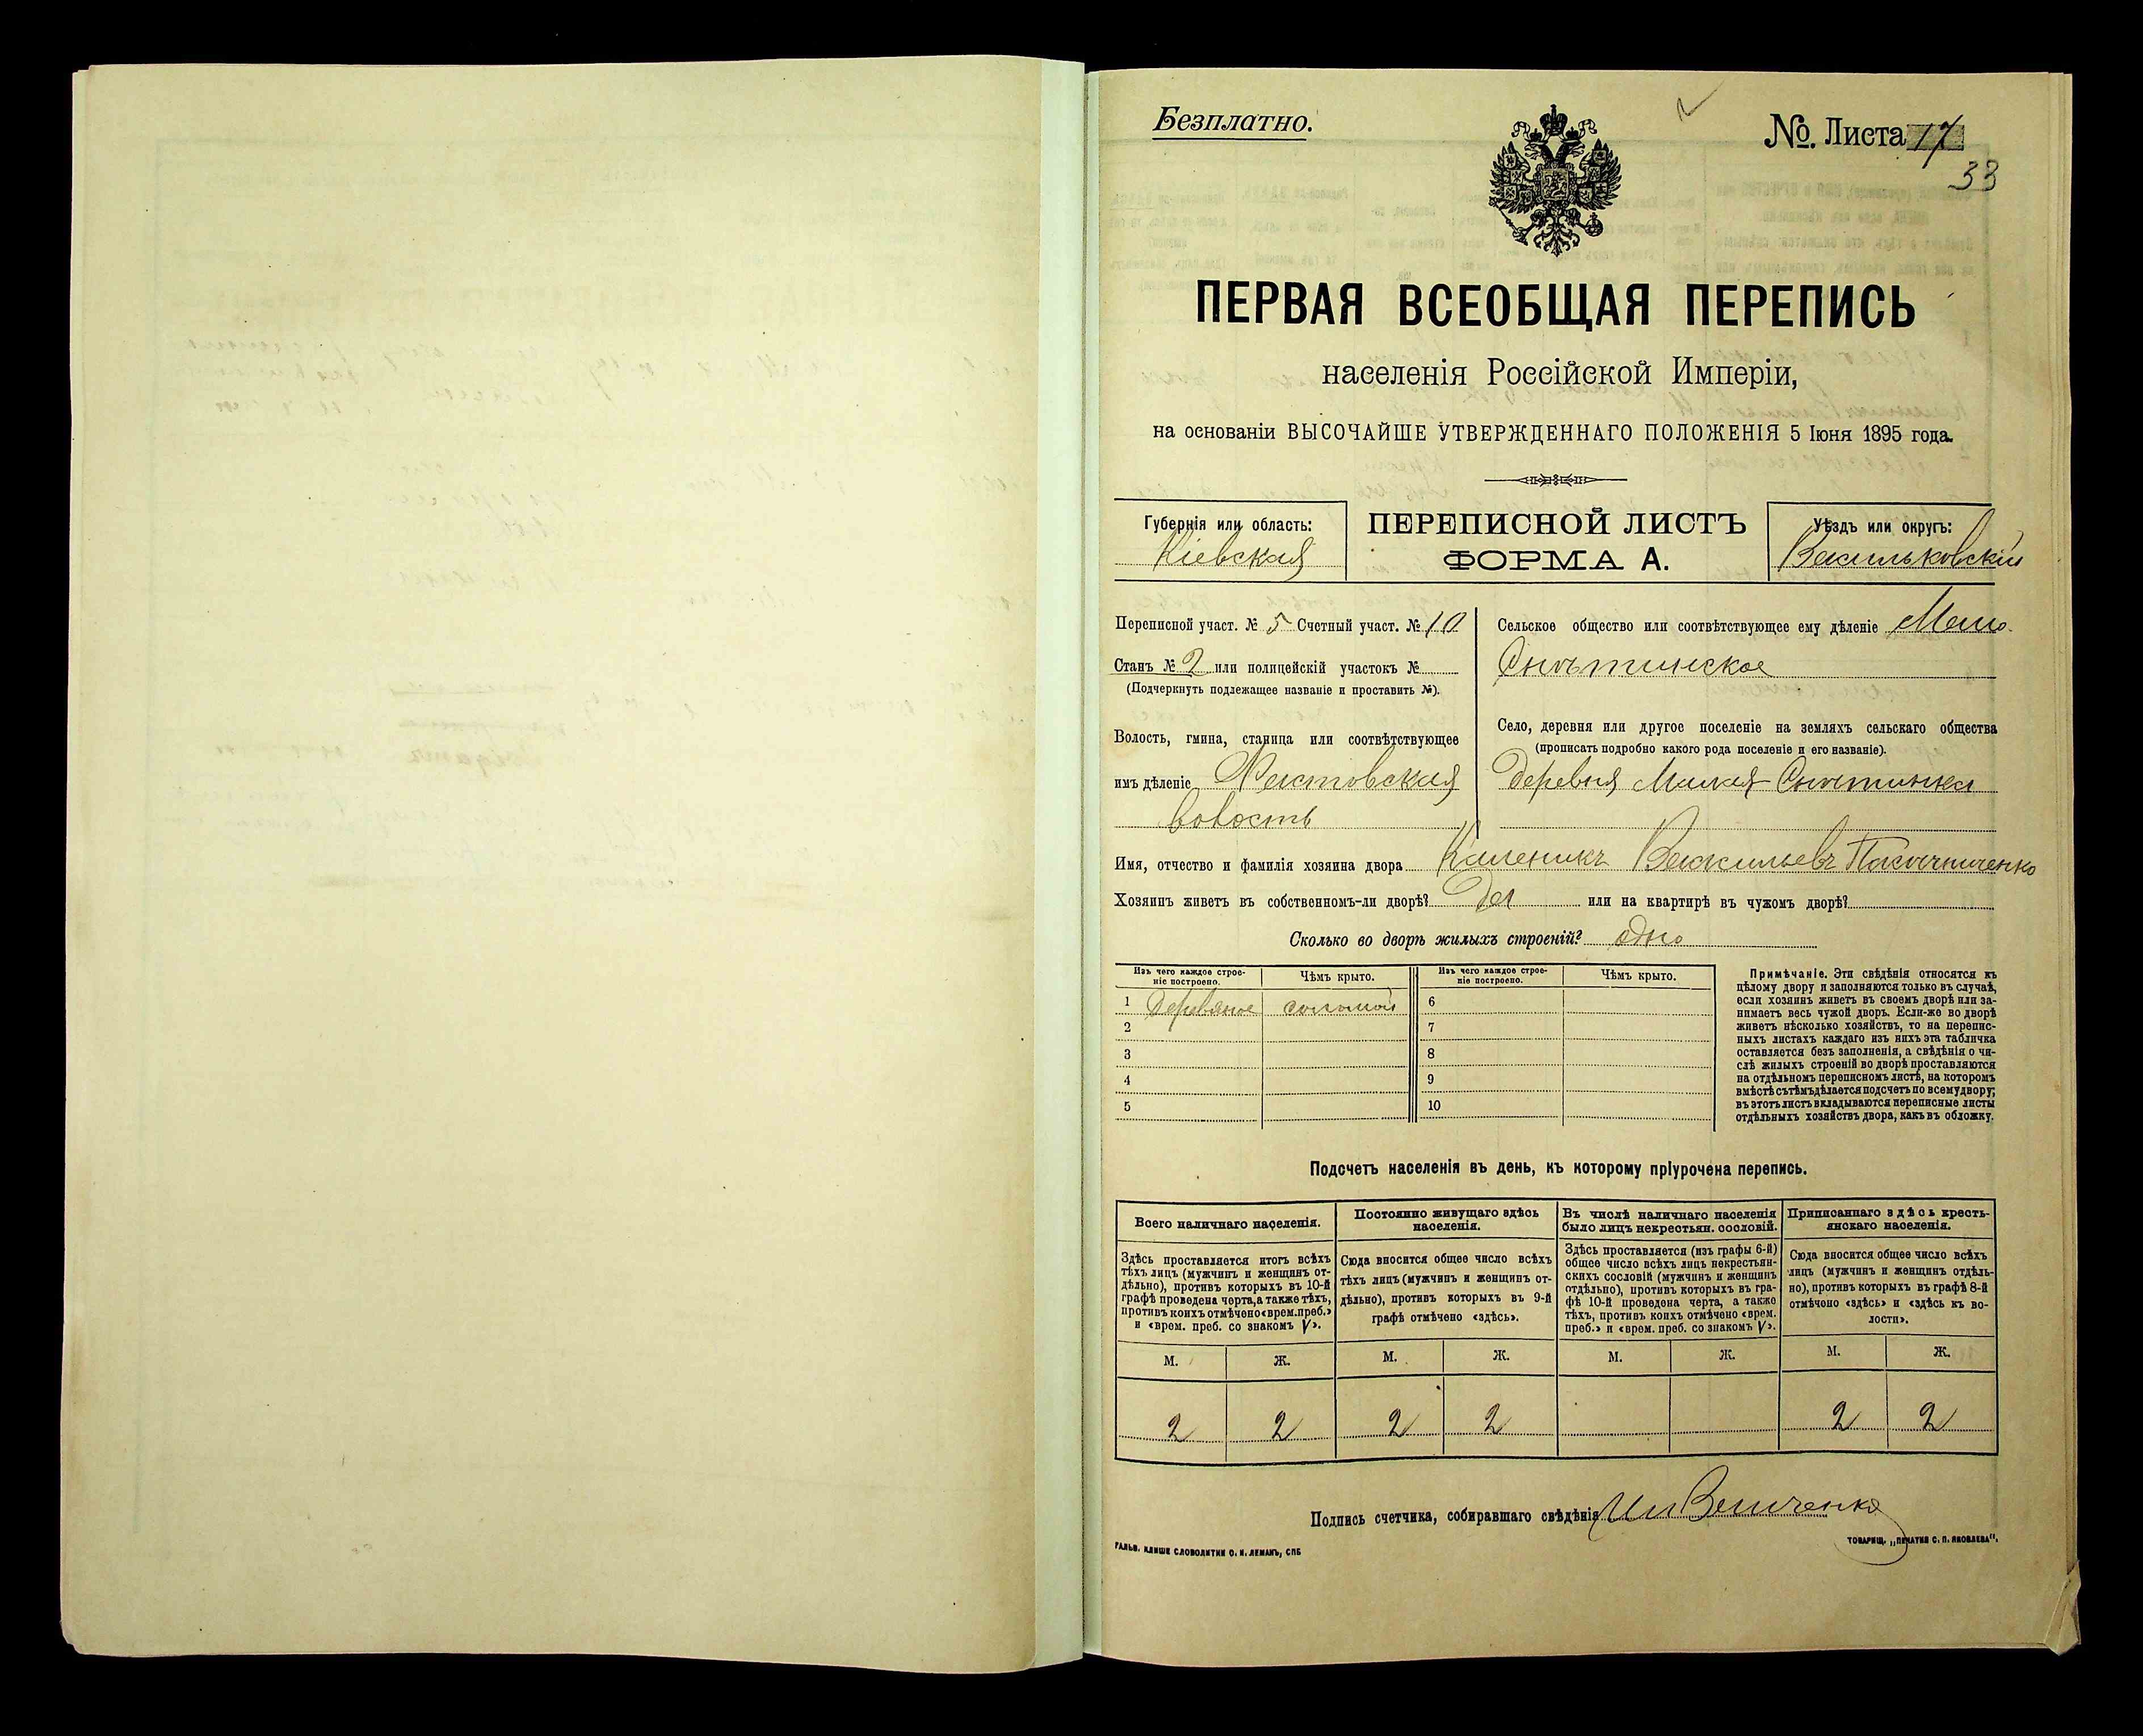 Безплатно.
№. Листа 17
33
ПЕРВАЯ ВСЕОБЩАЯ ПЕРЕПИСЬ
населенія Россійской Имперіи,
на основаніи ВЫСОЧАЙШЕ УТВЕРЖДЕННАГО ПОЛОЖЕНІЯ 5 Іюня 1895 года.
Губернія или область:
Кіевская
ПЕРЕПИСНОЙ ЛИСТЪ
ФОРМА А.
Уѣздъ или округъ:
Васильковскій
Переписной участ. № 5 Счетный участ. № 10
Станъ № 2 или полицейскій участокъ №
(Подчеркнуть подлежащее названіе и проставить №).
Волость, гмина, станица или соотвѣтствующее
имъ дѣленіе Фастовская
волость
Сельское общество или соотвѣтствующее ему дѣленіе Мало-
Снѣтинское
Село, деревня или другое поселеніе на земляхъ сельскаго общества
(прописать подробно какого рода поселеніе и его названіе).
Деревня Малая Снѣтинка
Имя, отчество и фамилія хозяина двора Каленикъ Васильевъ
Хозяинъ живетъ въ собственномъ-ли дворѣ? Да или на квартирѣ въ чужомъ дворѣ?
Сколько во дворѣ жилыхъ строеній? одно
Изъ чего каждое строе-
ніе построено.
Чѣмъ крыто.
Изъ чего каждое строе-
ніе построено.
Чѣмъ крыто.
1 Деревяное соломой 6
2 7
3 8
4 9
5 10
Примѣчаніе. Эти свѣдѣнія относятся къ
цѣлому двору и заполняются только въ случаѣ,
если хозяинъ живетъ въ своемъ дворѣ или за-
нимаетъ весь чужой дворъ. Если-же во дворѣ
живетъ нѣсколько хозяйствъ, то на перепис-
ныхъ листахъ каждаго изъ нихъ эта табличка
оставляется безъ заполненія, а свѣдѣнія о чи-
слѣ жилыхъ строеній во дворѣ проставляются
на отдѣльномъ переписномъ листѣ, на которомъ
вмѣстѣ съ тѣмъ дѣлается подсчетъ по всему двору;
въ этотъ листъ вкладываются переписные листы
отдѣльныхъ хозяйствъ двора, какъ въ обложку.
Подсчетъ населенія въ день, къ которому пріурочена перепись.
Всего наличнаго населенія.
Здѣсь проставляется итогъ всѣхъ
тѣхъ лицъ (мужчинъ и женщинъ от-
дѣльно), противъ которыхъ въ 10-й
графѣ проведена черта, а также тѣхъ,
противъ коихъ отмѣчено «врем. преб.»
и «врем. преб. со знакомъ V».
Постоянно живущаго здѣсь
населенія.
Сюда вносится общее число всѣхъ
тѣхъ лицъ (мужчинъ и женщинъ от-
дѣльно), противъ которыхъ въ 9-й
графѣ отмѣчено «здѣсь».
Въ числѣ наличнаго населенія
было лицъ некрестьян. сословій.
Здѣсь проставляется (изъ графы 6-й)
общее число всѣхъ лицъ некрестьян-
скихъ сословій (мужчинъ и женщинъ
отдѣльно), противъ которыхъ въ гра-
фѣ 10-й проведена черта, а также
тѣхъ, противъ коихъ отмѣчено «врем.
преб.» и «врем. преб. со знакомъ V».
Приписаннаго здѣсь кресть-
янскаго населенія.
Сюда вносится общее число всѣхъ
лицъ (мужчинъ и женщинъ отдѣль-
но), противъ которыхъ въ графѣ 8-й
отмѣчено «здѣсь» и «здѣсь къ во-
лости».
М. Ж. М. Ж. М. Ж. М. Ж.
2 2 2 2 2 2
Подпись счетчика, собиравшаго свѣдѣнія
ГАЛЬВ. КЛИШЕ СЛОВОЛИТНИ О. И. ЛЕМАНЪ, СПБ
ТОВАРИЩ. „ПЕЧАТНЯ С. П. ЯКОВЛЕВА".